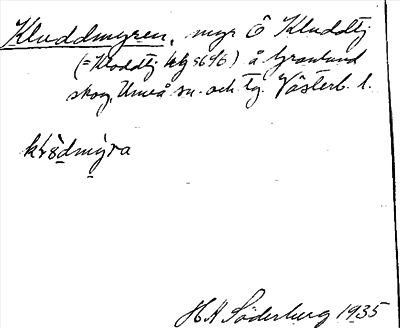 Kluddmyren, myr Ö Kluddtj
(= Kloddtj kbg 5696) å Granlund
skog, Umeå sn. och tg. Västerb. l.
myra
H A Söderberg 1935